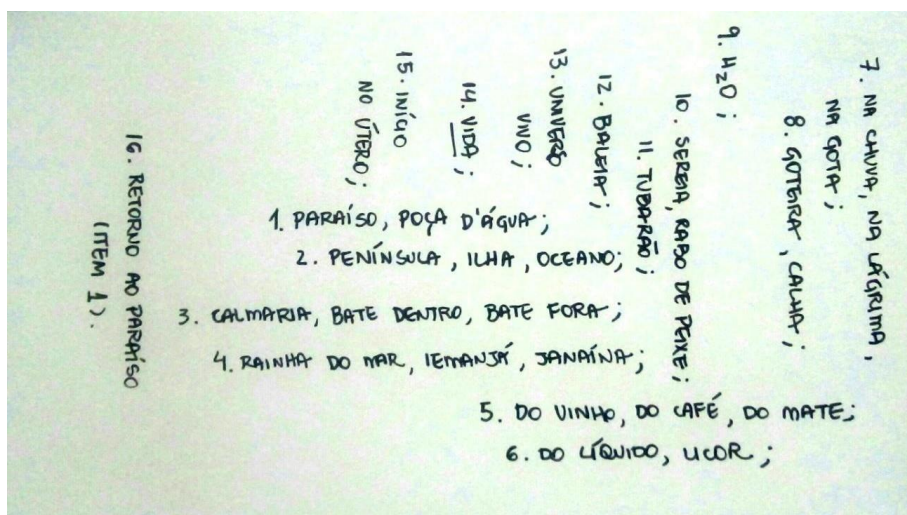 1. PARAÍSO, POÇA D'ÁGUA;
2. PENÍNSULA, ILHA, OCEANO;
3. CALMARIA, BATE DENTRO, BATE FORA;
4. RAINHA DO MAR, IEMANJÁ, JANAÍNA;
5. DO VINHO, DO CAFÉ, DO MATE;
6. DO LÍQUIDO, LICOR;
7. NA CHUVA, NA LÁGRIMA,
NA GOTA;
8. GOTEIRA, CALHA;
9. H₂O;
10. SEREIA, RABO DE PEIXE;
11. TUBARÃO;
12. BALEIA;
13. UNIVERSO
VIVO;
14. VIDA;
15. INÍCIO
NO ÚTERO;
16. RETORNO AO PARAÍSO
(ITEM 1).